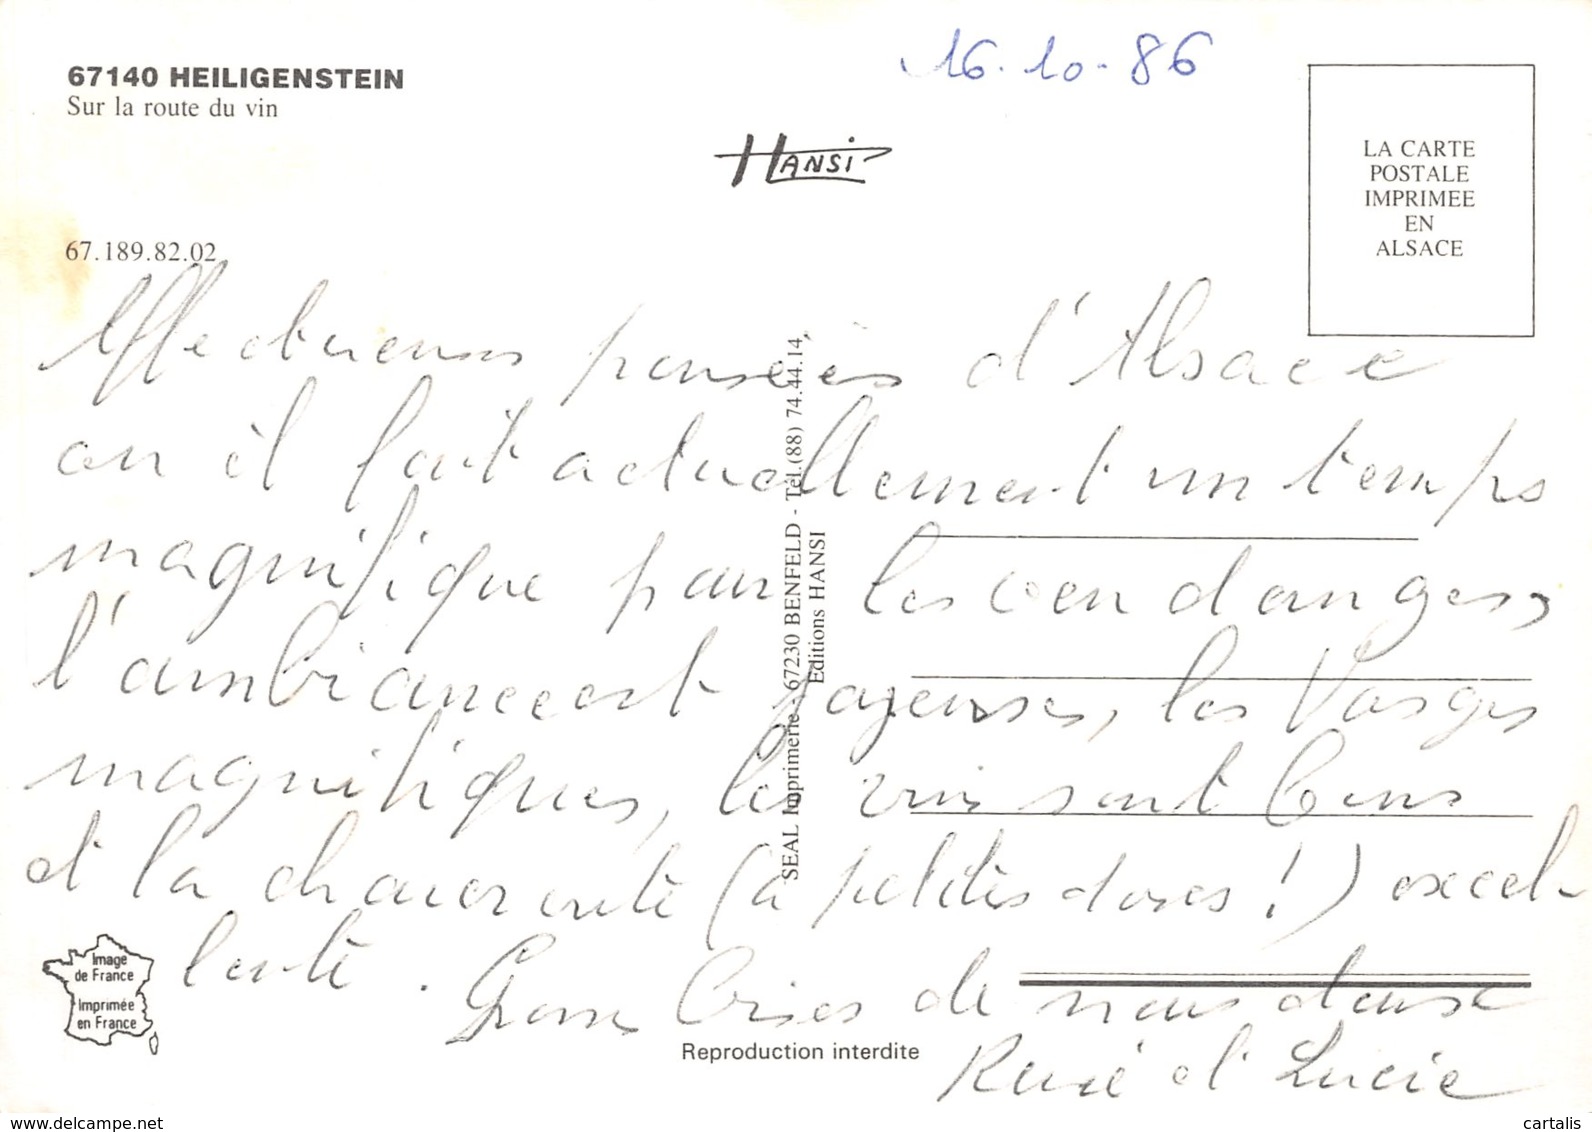 67140 HEILIGENSTEIN
Sur la route du vin
16.10.86
HANSI
LA CARTE
POSTALE
IMPRIMEE
EN
ALSACE
67.189.82.02
Affectueuses pensées d'Alsace
où il fait actuellement un temps
magnifique pour les vendanges,
l'ambiance est joyeuse, les Vosges
magnifiques, les vins sont bons
et la choucroute (à petites doses !) excel-
lente. Gros baisers de nous deux
René et Lucie
SEAL Imprimerie - 67230 BENFELD - Tél.(88) 74.44.14,
Editions HANSI
Image
de France
Imprimée
en France
Reproduction interdite
www.delcampe.net
cartalis